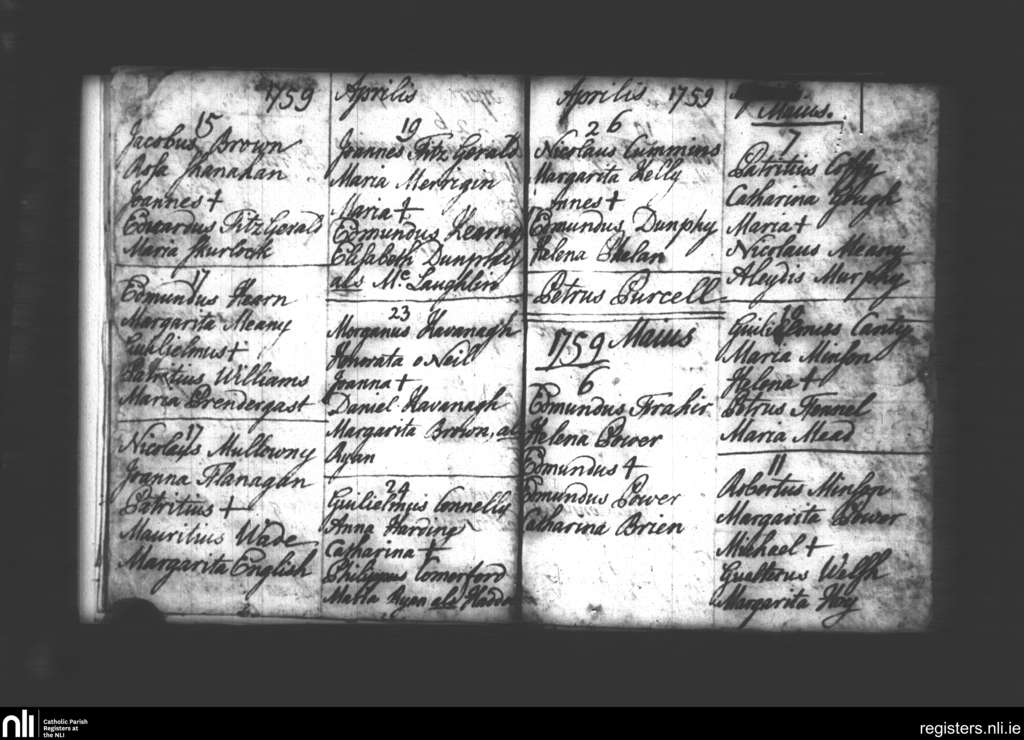 1759
15
Jacobus Brown
Rosa Shanahan
Joannes +
Edvardus FitzGerald
Maria Skurlock
17
Edmundus Hearn
Margarita Meany
Guilielmus +
Patritius Williams
Maria Prendergast
17
Nicolaus Mullowny
Joanna Flanagan
Patritius +
Mauritius Wade
Margarita English
Aprilis
19
Joannes Fitz Gerald
Maria Merrigin
Maria +
Edmundus Kearny
Elisabeth Dunphy
als Mc Laughlin
23
Morganus Kavanagh
Honorata o Neil
Joanna +
Daniel Kavanagh
Margarita Brown, als
Ryan
24
Guilielmus Connelly
Anna Harding
Catharina +
Philippus Comerford
Maria Ryan als
Aprilis 1759
26
Nicolaus Cummins
Margarita Kelly
Annes +
Edmundus Dunphy
Helena Phelan
Petrus Purcell
1759 Maius
6
Edmundus Frahir
Helena Power
Edmundus +
Edmundus Power
Catharina Brien
Maius.
7
Patritius Coffy
Catharina Gough
Maria +
Nicolaus Meany
Aleydis Murphy
Guilielmus Canty
Maria Minson
Helena +
Petrus Fennel
Maria Mead
11
Robertus Minson
Margarita Power
Michael +
Gualterus Welsh
Margarita Hay
nli
Catholic Parish
Registers at
the NLI
registers.nli.ie